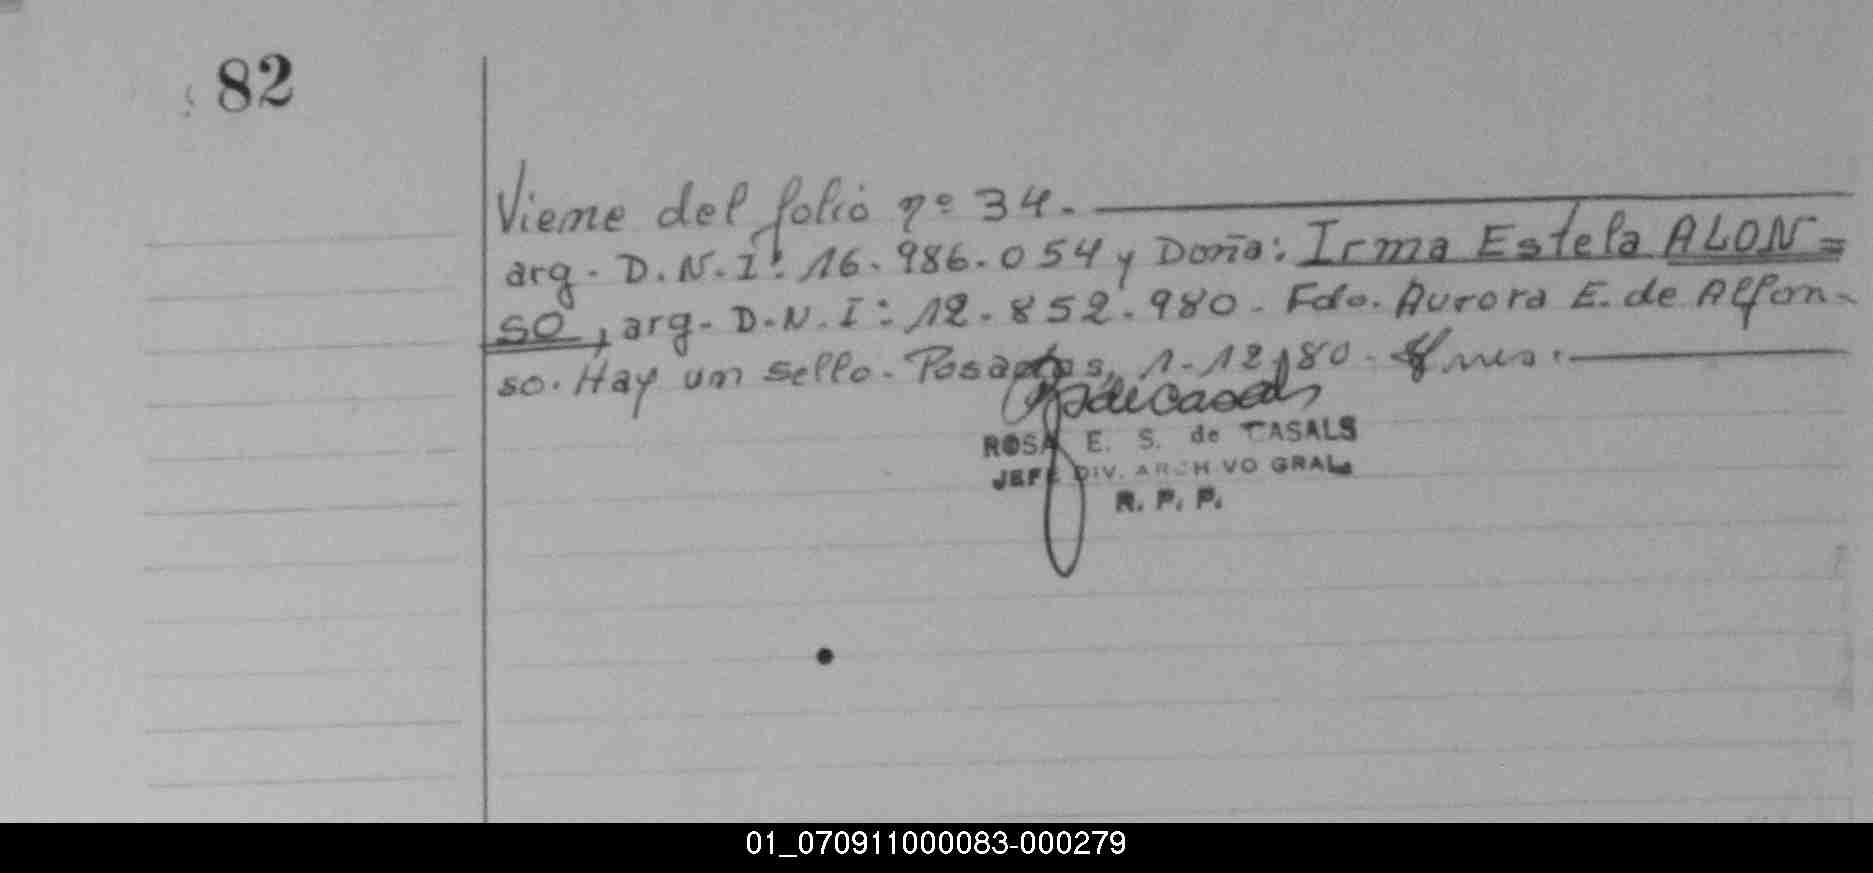 82
Viene del folio nº 34.-
arg. D.N.I: 16.986.054 y Doña: Irma Estela ALON=
SO, arg. D.N.I: 12.852.980. Fdo. Aurora E. de Alfon-
so. Hay un sello. Posadas, 1-12-80.
ROSA E. S. de CASALS
JEFE DIV. ARCHIVO GRAL.
R. P. P.
01_070911000083-000279